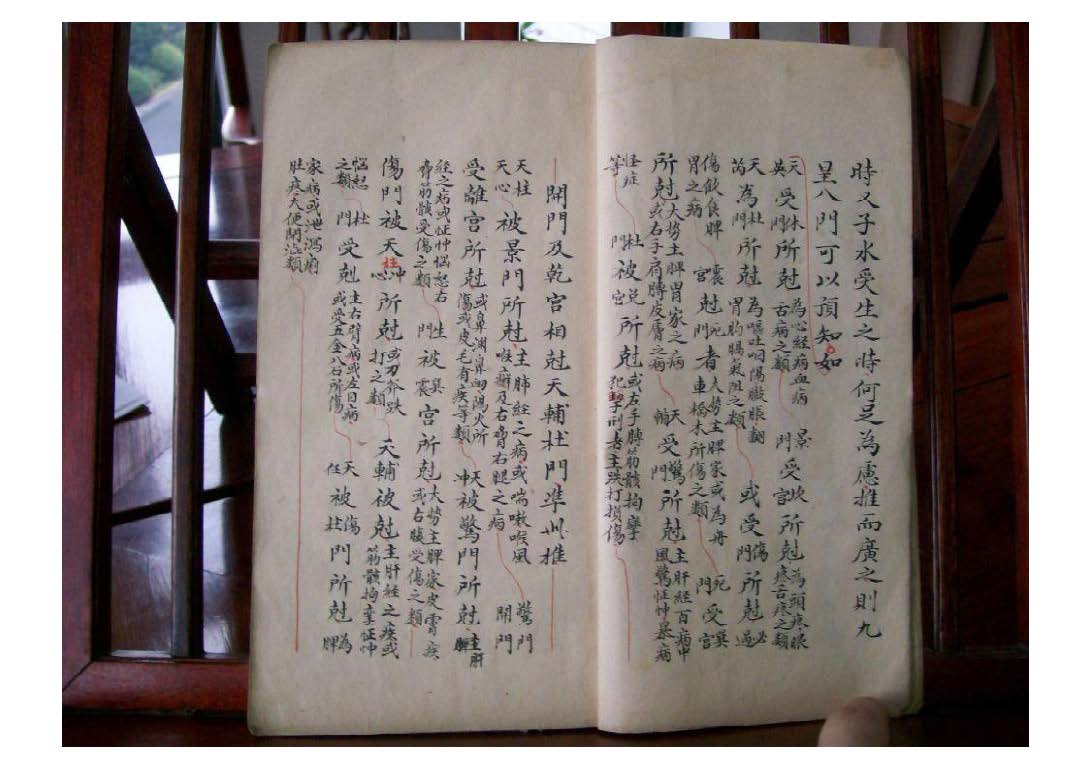 時又子水受生之時何足為慮推而廣之則九
呈八門可以預知如
天英受休門所尅為心經病血病舌病之類景門受坎宮所尅為頭疼眼疼舌疼之類
天芮為杜門所尅為嘔吐咽陽膨脹翻胃胸膈氣阻之類或受傷門所尅必過
傷飲食脾胃之病震宮尅死門者大勢主脾家或為舟車橋木所傷之類死門受巽宮
所尅大勢主脾胃家之病或右手肩膊皮膚之病天輔受驚門所尅主肝經百病中風驚怔忡暴病
怪症等杜門被兌宮所尅或左手膊筋骸拘攣犯刑者主跌打損傷
開門及乾宮相尅天輔杜門準此推
天柱天心被景門所尅主肺經之病或喘嗽喉風喉癬及右脅右腿之病驚門開門
受離宮所尅或鼻淵鼻血陽火所傷或皮毛有疾等類天冲被驚門所尅主肝
經之病或怔忡惱怒右脅筋骸受傷之類生門被巽震宮所尅大勢主脾家皮膚疾或右腿受傷之類
傷門被天柱心所尅或刀斧跌打之類天輔被尅主肝經之疾或筋骸拘攣怔忡
惱怒之類杜門受尅主右臂病或左目病或受五金八石所傷天任被傷杜門所尅為脾
家病或泄瀉痢肚疼大便閉澁類